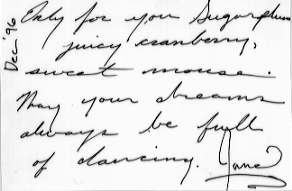 Dec '96
Only for you Sugarplum
juicy cranberry,
sweet mouse.
May your dreams
always be full
of dancing. Jane